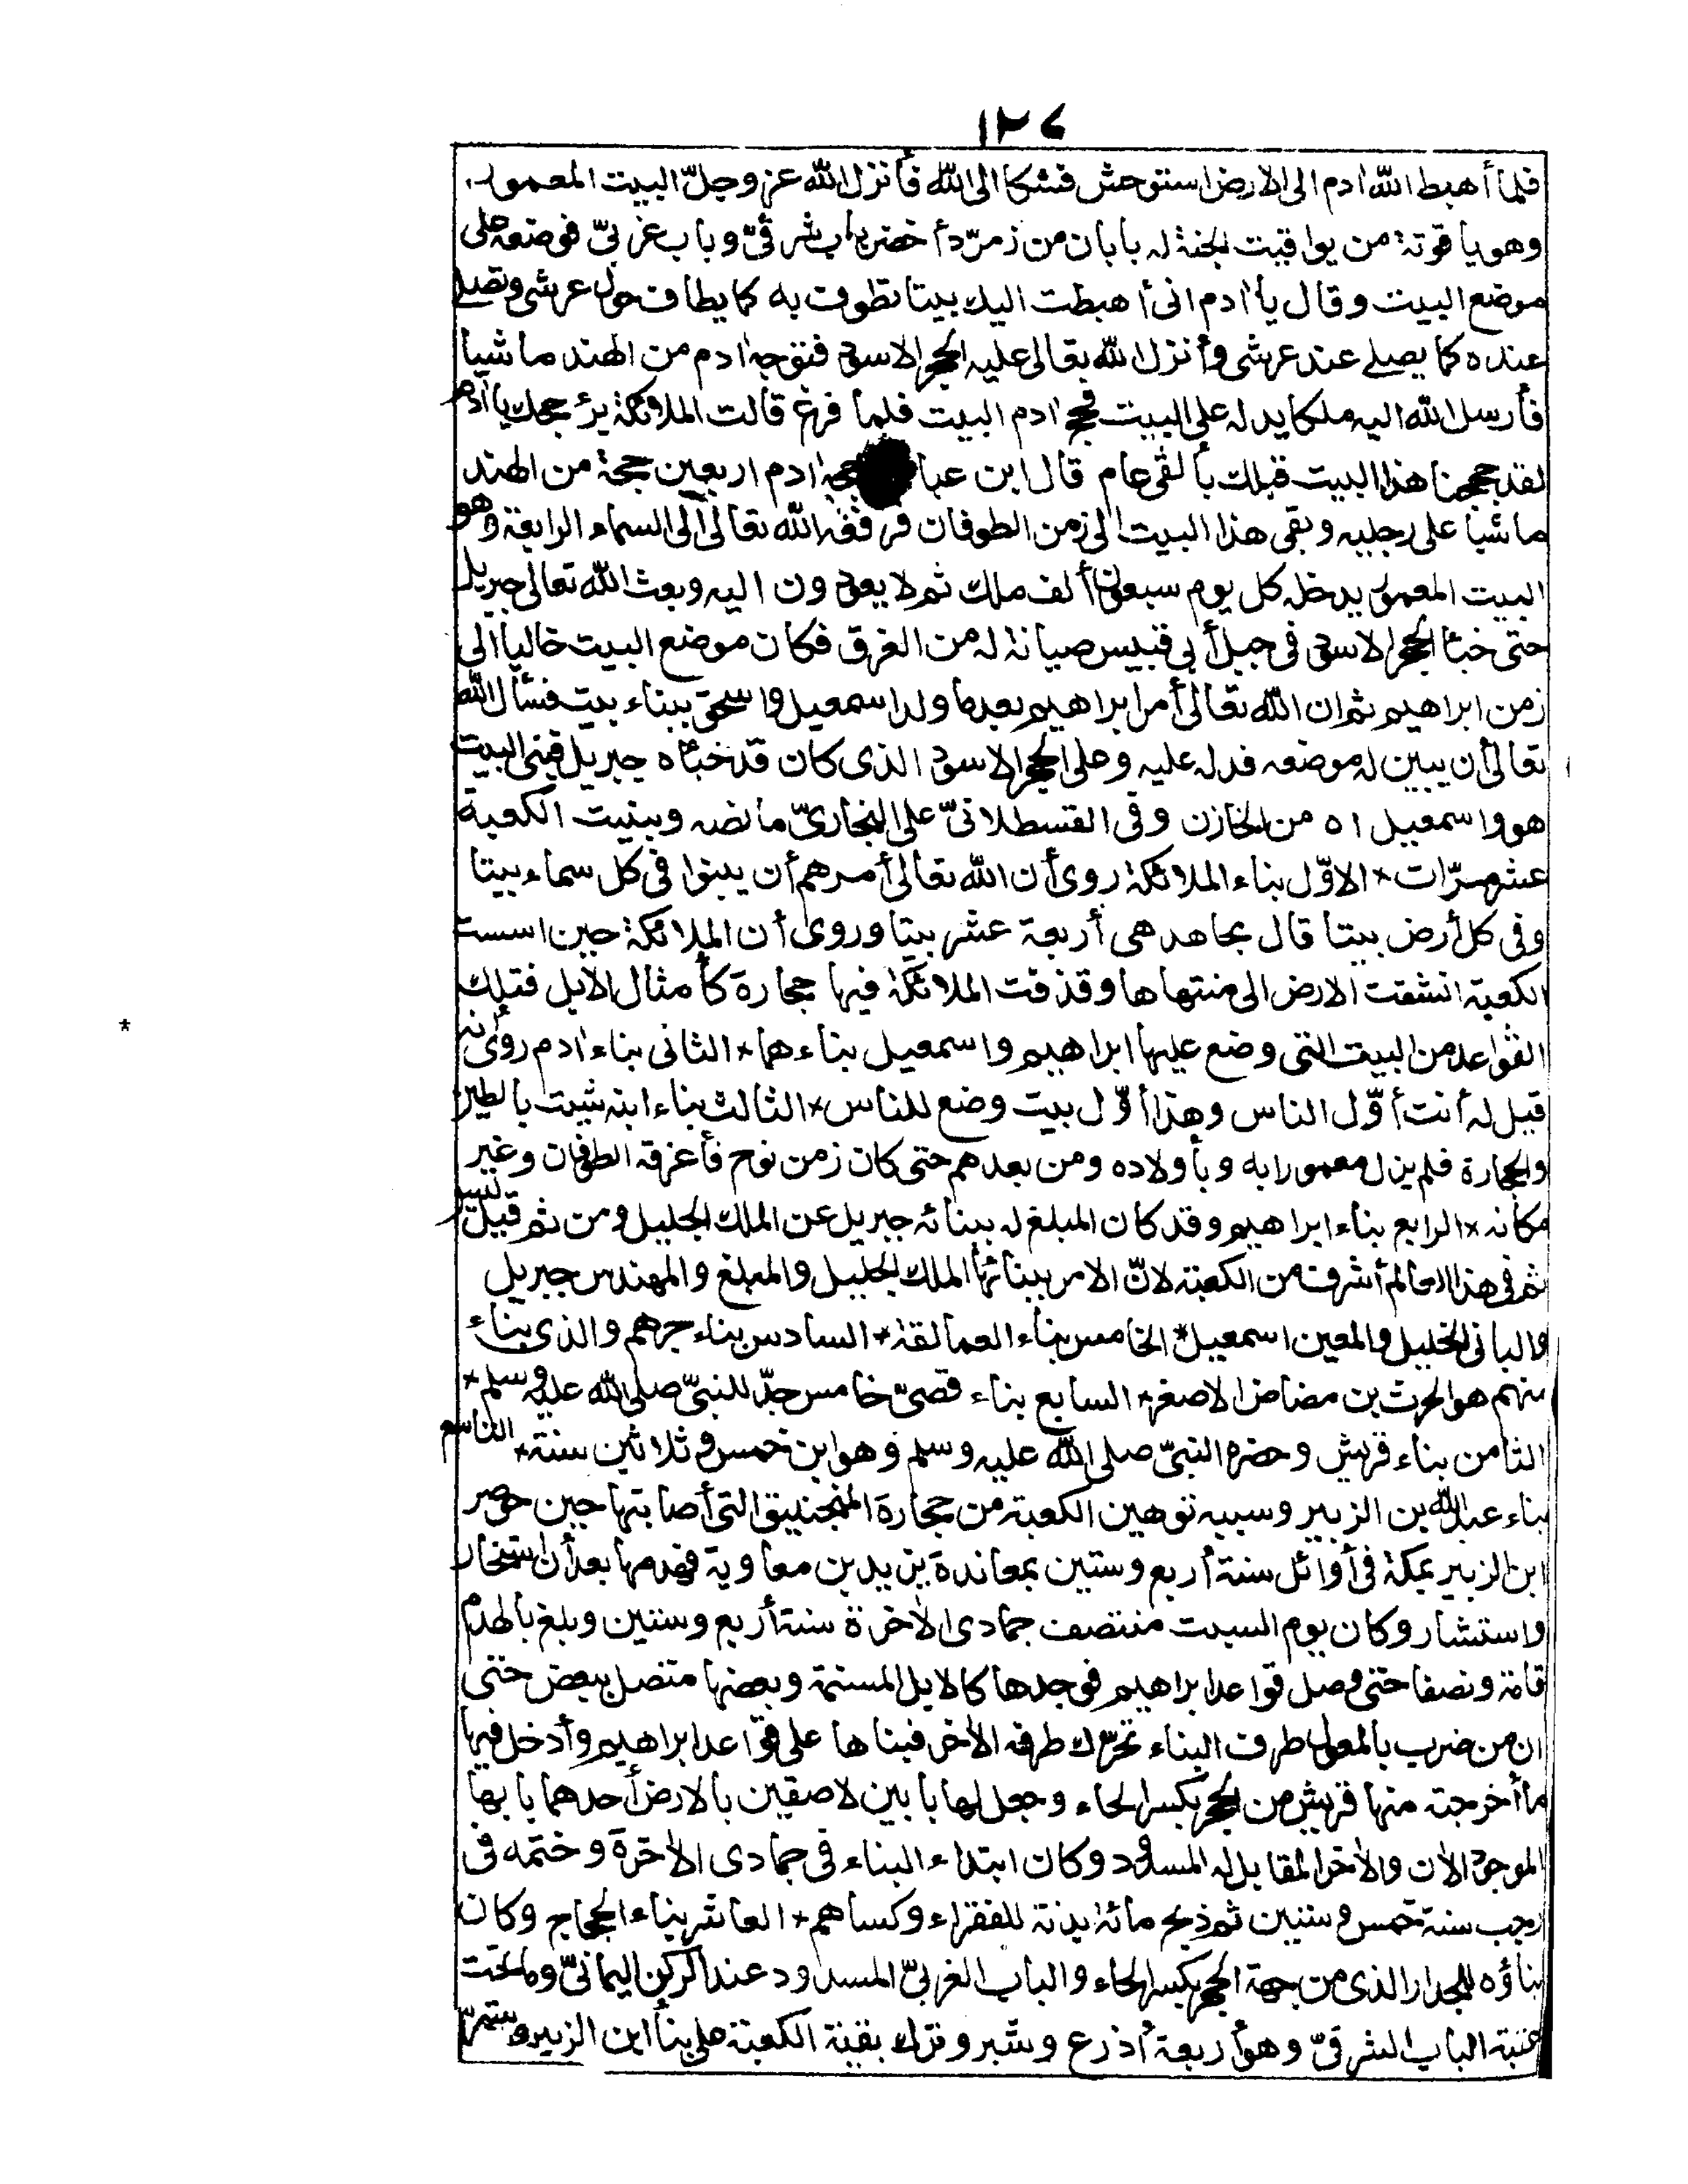 ١٢٦
فلما أهبط الله ادم الى الارض استوحش فشكا الى الله فأنزل الله عز وجلّ البيت المعمور
وهو ياقوتة من يواقيت الجنة له بابان من زمرّد أخضر باب شرقىّ وباب غربىّ فوضعه على
موضع البيت وقال يا ادم انى أهبطت اليك بيتا تطوف به كما يطاف حول عرشى وتصلى
عنده كما يصلى عند عرشى وأنزل الله تعالى عليه الحجر الاسود فتوجه ادم من الهند ماشيا
فأرسل الله اليه ملكا يدله على البيت فحج ادم البيت فلما فرغ قالت الملائكة برّ حجك يا آدم
لقد حججنا هذا البيت قبلك بألفى عام قال ابن عبا حج ادم اربعين حجة من الهند
ماشيا على رجليه وبقى هذا البيت الى زمن الطوفان فرفعه الله تعالى الى السماء الرابعة وهو
البيت المعمور يدخله كل يوم سبعون ألف ملك ثم لا يعودون اليه وبعث الله تعالى جبريل
حتى خبأ الحجر الاسود فى جبل أبى قبيس صيانة له من الغرق فكان موضع البيت خاليا الى
زمن ابراهيم ثم ان الله تعالى أمر ابراهيم بعد ما ولد اسمعيل واسحق ببناء بيت فسأل الله
تعالى أن يبين له موضعه فدله عليه وعلى الحجر الاسود الذى كان قد خبأه جبريل فبنى البيت
هو واسمعيل اه من الخازن وفى القسطلانىّ على البخارىّ ما نصه وبنيت الكعبة
عشر مرّات * الاوّل بناء الملائكة روى أن الله تعالى أمرهم أن يبنوا فى كل سماء بيتا
وفى كل أرض بيتا قال مجاهد هى أربعة عشر بيتا وروى أن الملائكة حين اسست
الكعبة انشقت الارض الى منتهاها وقذفت الملائكة فيها حجارة كأمثال الابل فتلك
القواعد من البيت التى وضع عليها ابراهيم واسمعيل بناءهما * الثانى بناء ادم روى أنه
قيل له أنت أوّل الناس وهذا أوّل بيت وضع للناس * الثالث بناء ابنه شيث بالطين
والحجارة فلم يزل معمورا به وبأولاده ومن بعدهم حتى كان زمن نوح فأغرقه الطوفان وغير
مكانه * الرابع بناء ابراهيم وقد كان المبلغ له ببنائه جبريل عن الملك الجليل ومن ثم قيل ليس
ثم فى هذا العالم أشرف من الكعبة لانّ الامر ببنائها الملك الجليل والمبلغ والمهندس جبريل
والبانى الخليل والمعين اسمعيل * الخامس بناء العمالقة * السادس بناء جرهم والذى بناه
منهم هو الحرث بن مضاض الاصغر * السابع بناء قصىّ خامس جدّ للنبىّ صلى الله عليه وسلم *
الثامن بناء قريش وحضره النبىّ صلى الله عليه وسلم وهو ابن خمس وثلاثين سنة * التاسع
بناء عبد الله بن الزبير وسببه توهين الكعبة من حجارة المنجنيق التى أصابتها حين حوصر
ابن الزبير بمكة فى أوائل سنة أربع وستين بمعاندة يزيد بن معاوية فهدمها بعد أن استخار
واستشار وكان يوم السبت منتصف جمادى الاخرة سنة أربع وستين وبلغ بالهدم
قامة ونصفا حتى وصل قواعد ابراهيم فوجدها كالابل المسنمة وبعضها متصل ببعض حتى
ان من ضرب بالمعول طرف البناء تحرّك طرفه الاخر فبناها على قواعد ابراهيم وأدخل فيها
ما أخرجته منها قريش من الحجر بكسر الحاء وجعل لها بابين لاصقين بالارض أحدهما بابها
الموجود الان والاخر المقابل له المسدود وكان ابتداء البناء فى جمادى الاخرة وختمه فى
رجب سنة خمس وستين ثم ذبح مائة بدنة للفقراء وكساهم * العاشر بناء الحجاج وكان
بناؤه للجدار الذى من جهة الحجر بكسر الحاء والباب الغربىّ المسدود عند الركن اليمانىّ وما تحت
عتبة الباب الشرقىّ وهو أربعة أذرع وشبر وترك بقية الكعبة على بناء ابن الزبير واستمرّ
*